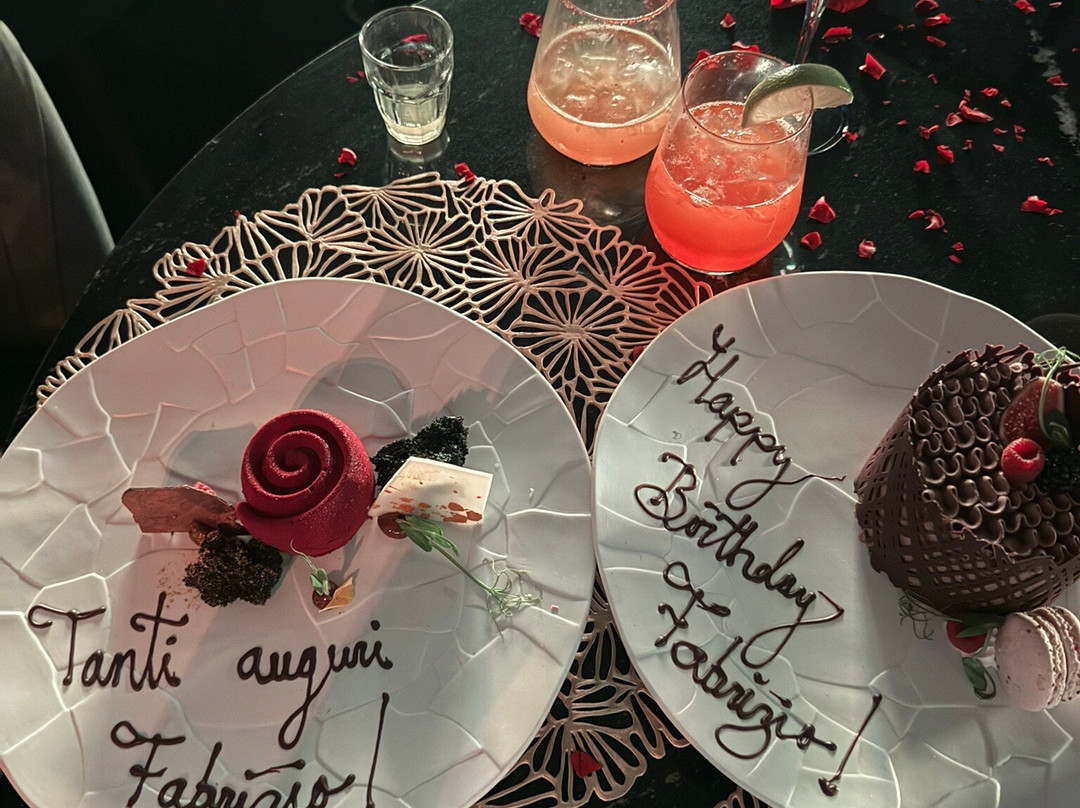 Tanti auguri
Fabrizio!
Happy
Birthday
Fabrizio!